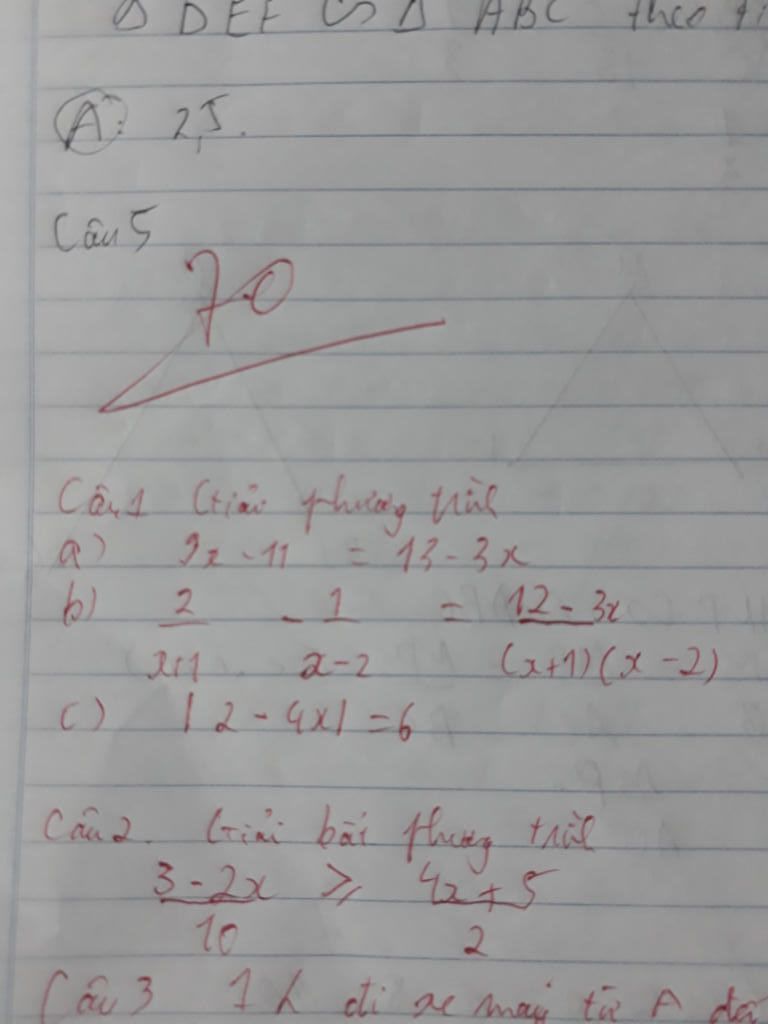 Δ DEF ∽ Δ ABC theo
A: 2,5.
Câu 5
70
Câu 1 Giải phương trình
a) 9x - 11 = 13 - 3x
b) 2/(x+1) - 1/(x-2) = (12 - 3x)/((x+1)(x-2))
c) |2 - 4x| = 6
Câu 2. Giải bất phương trình
(3 - 2x)/10 ≥ (4x + 5)/2
Câu 3 1 h đi xe máy từ A đến